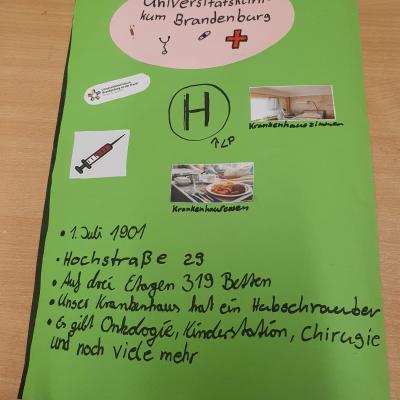 Universitätsklini
kum Brandenburg
H
↑LP
Krankenhauszimmer
Krankenhausessen
• 1. Juli 1901
• Hochstraße 29
• Auf drei Etagen 319 Betten
• Unser Krankenhaus hat ein Hubschrauber
• Es gibt Onkologie, Kinderstation, Chirugie
und noch viele mehr